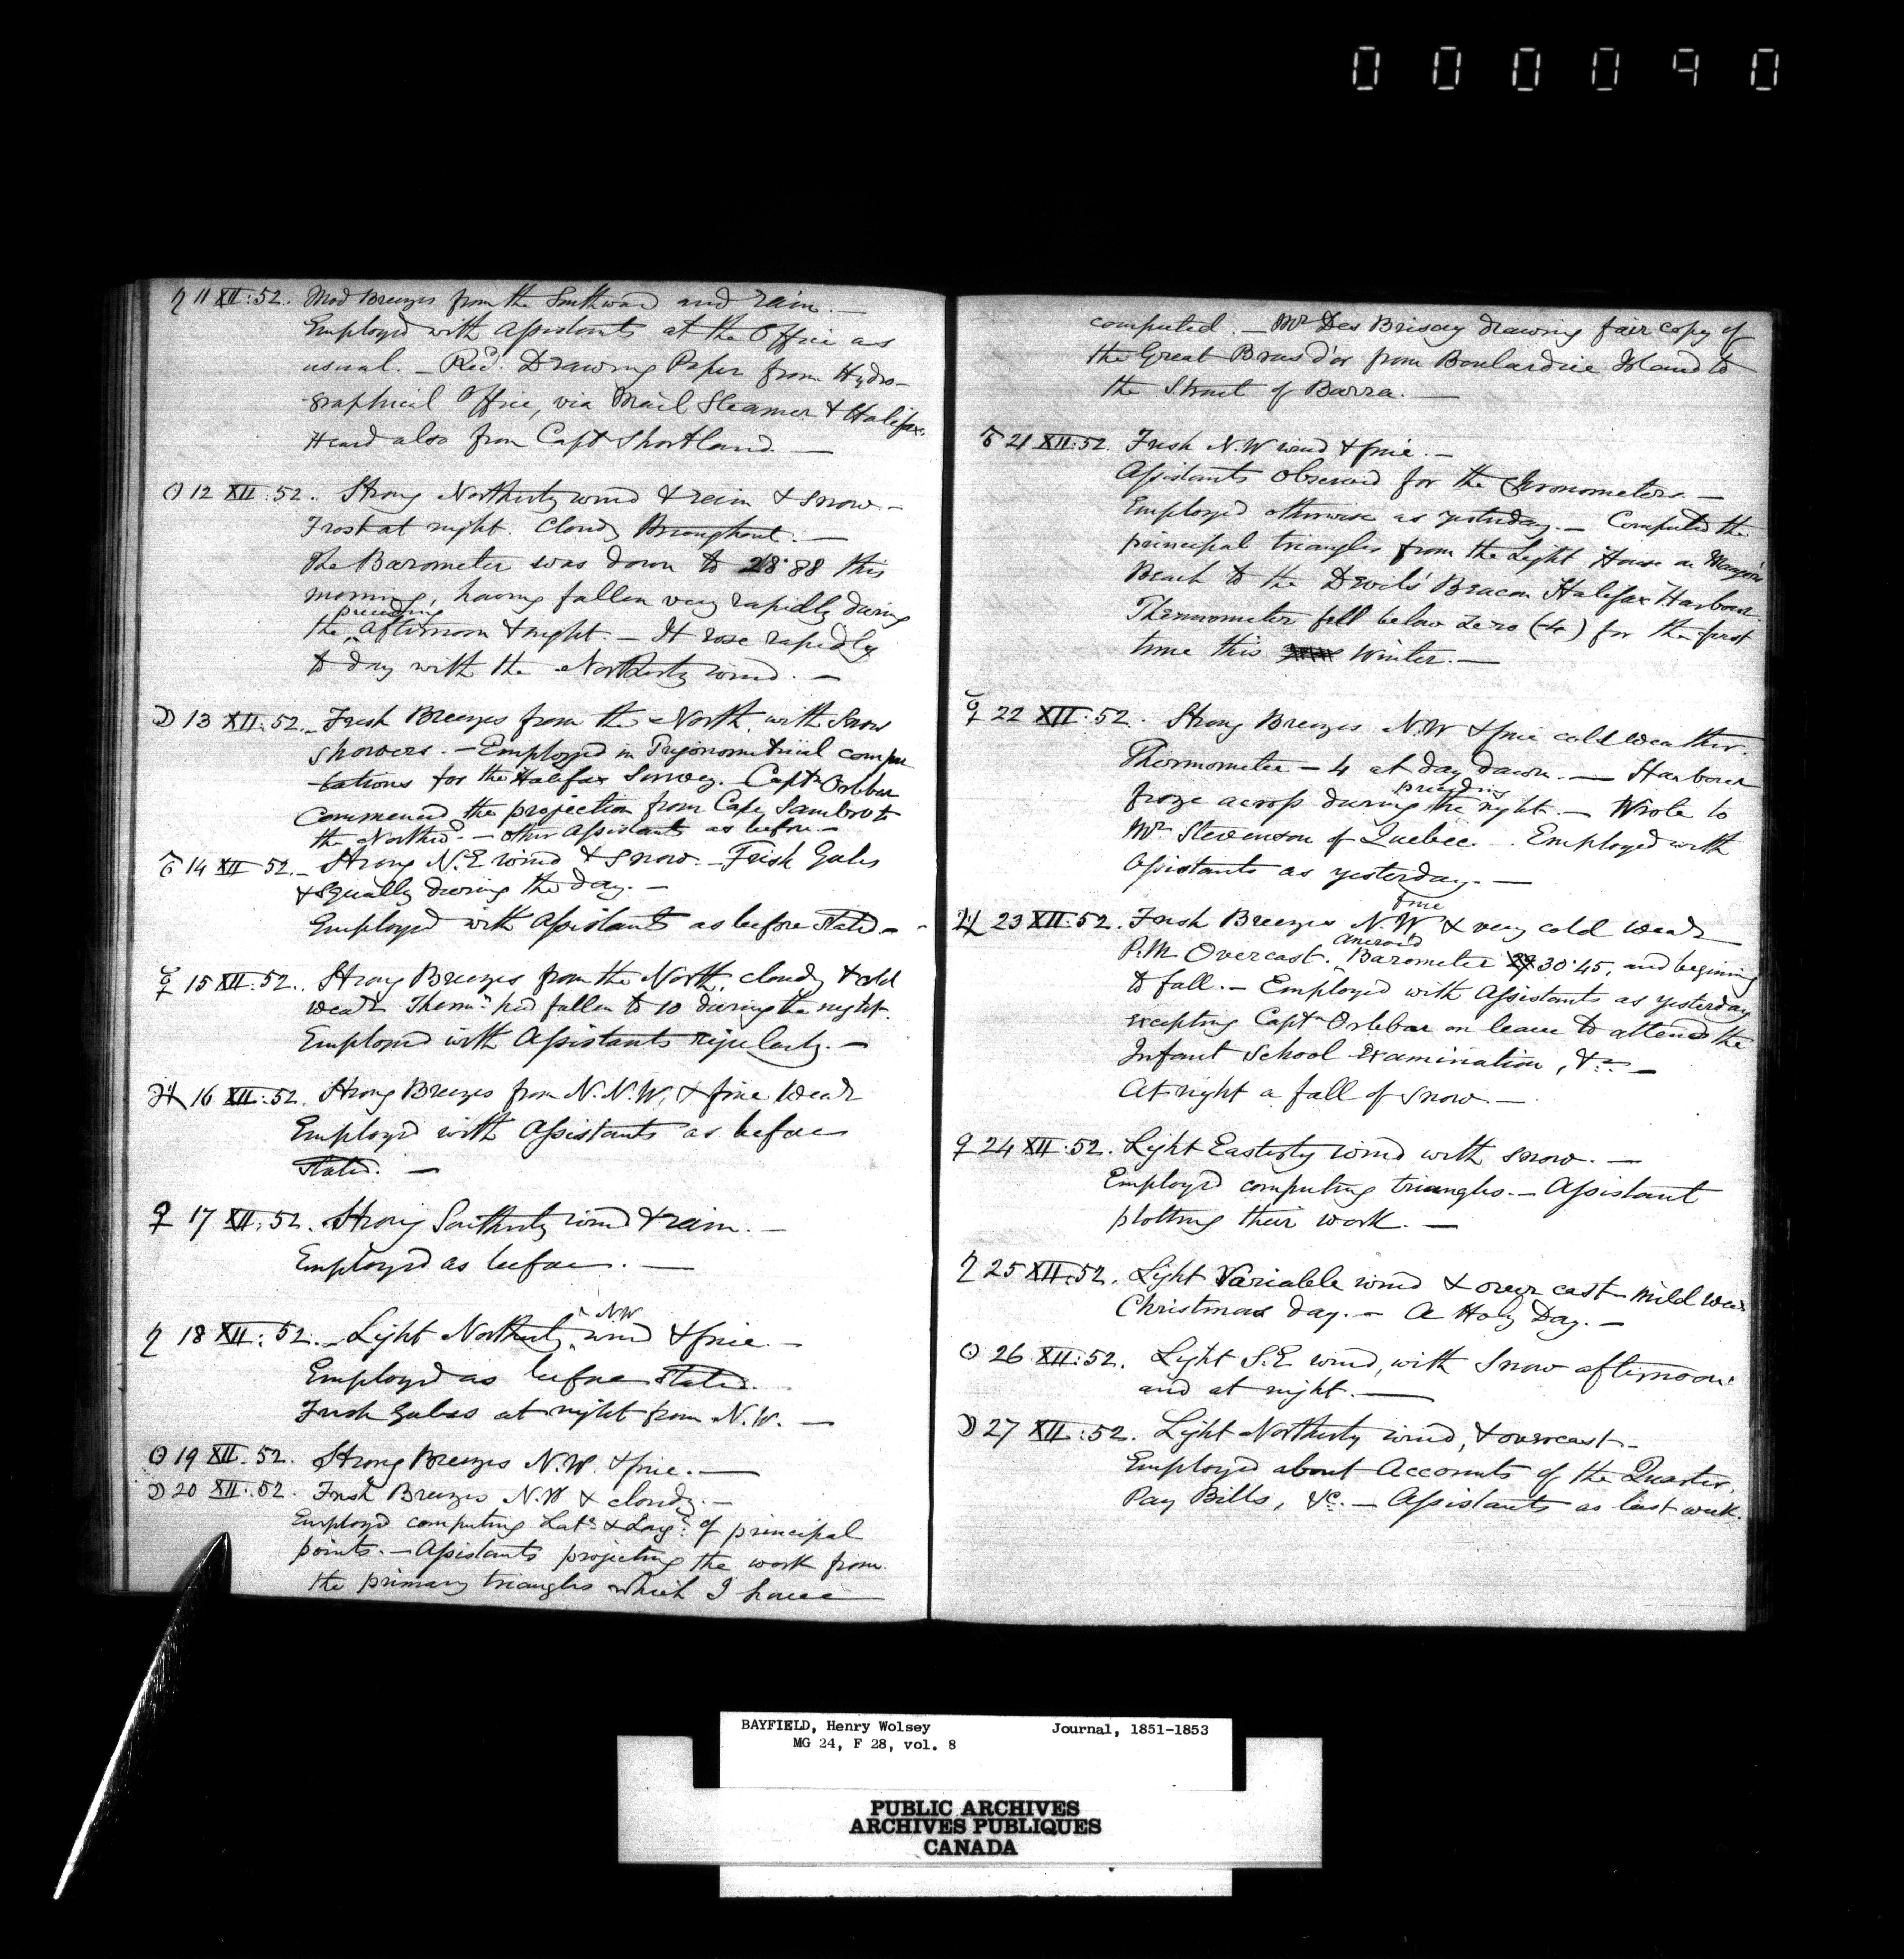 000090
♄ 11 XII:52. Mod Breezes from the Southward and rain. —
Employed with Assistants at the Office as
usual. — Recd. Drawing Paper from Hydro-
-graphical Office, via Mail Steamer & Halifax.
Heard also from Capt Shortland. —
☉ 12 XII:52. Strong Northerly wind & rain & snow. —
Frost at night. Cloudy throughout. —
The Barometer was down to 28.88 this
morning, having fallen very rapidly during
preceding
the ‸ afternoon & night. — It rose rapidly
to day with the Northerly wind. —
☽ 13 XII:52. — Fresh Breezes from the North, with Snow
showers. — Employed in Trigonometrical compu
-tations for the Halifax Survey. Captn Orlebar
Commenced the projection from Cape Sambro to
the Northwd. — other Assistants as before —
♂ 14 XII 52. — Strong N.E wind & snow. — Fresh Gales
& Squally during the day. —
Employed with Assistants as before stated. —
☿ 15 XII:52. Strong Breezes from the North, cloudy & cold
Weathr Thermr had fallen to 10 during the night.
Employed with Assistants regularly. —
♃ 16 XII:52. Strong Breezes from N.N.W. & fine Weathr
Employed with Assistants as before
stated. —
♀ 17 XII:52. Strong Southerly wind & rain. —
Employed as before. —
NW
♄ 18 XII:52. — Light Northerly ‸ wind & fine. —
Employed as before stated.
Fresh Gales at night from N.W. —
☉ 19 XII.52. Strong Breezes N.W. & fine. —
☽ 20 XII.52. Fresh Breezes N.W & cloudy. —
Employd computing Lats & Longs of principal
points. — Assistants projecting the work from
the primary triangles which I have
computed. — Mr Des Brisay drawing fair copy of
the Great Bras d'or from Boulardrie Island to
the Strait of Barra. —
♂ 21 XII:52. Fresh N.W wind & fine. —
Assistants Observed for the Chronometers. —
Employed otherwise as yesterday. — Computed the
principal triangles from the Light House on Maugers
Beach to the Devils Beacon Halifax Harbour.
Thermometer fell below Zero (-4) for the first
time this Winter. —
☿ 22 XII:52. Strong Breezes N.W & fine cold weather.
Thermometer — 4 at day dawn. — Harbour
preceding
froze across during the night. — Wrote to
Mr Stevenson of Quebec. — Employed with
Assistants as yesterday. —
fine
♃ 23 XII:52. Fresh Breezes N.W & very cold Weathr
Aneroid
P.M. Overcast. ‸ Barometer 30.45, and begining
to fall. — Employed with Assistants as yesterday
excepting Captn Orlebar on leave to attend the
Infant School Examination, &c —
At night a fall of snow —
♀ 24 XII:52. Light Easterly wind with snow. —
Employd computing triangles. — Assistant
plotting their work. —
♄ 25 XII:52. Light Variable wind & over cast mild Wear
Christmas day. — A Holy Day. —
☉ 26 XII:52. Light S.E wind, with Snow afternoon
and at night. —
☽ 27 XII:52. Light Northerly wind, & overcast —
Employed about Accounts of the Quarter,
Pay Bills, &c. — Assistants as last week.
BAYFIELD, Henry Wolsey Journal, 1851-1853
MG 24, F 28, vol. 8
PUBLIC ARCHIVES
ARCHIVES PUBLIQUES
CANADA